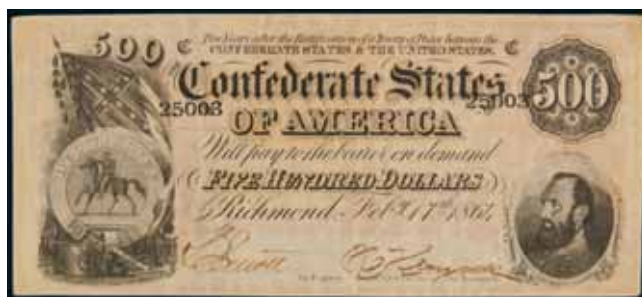 500 C Two Years after the Ratification of a Treaty of Peace between the C
CONFEDERATE STATES & THE UNITED STATES.
500
Confederate States
25003 25003
OF AMERICA
Will pay to the bearer on demand
FIVE HUNDRED DOLLARS
Richmond Feb. 17th 1864